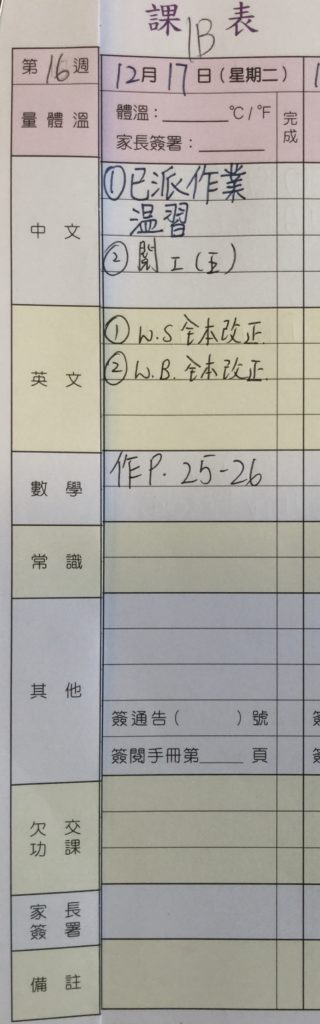 課表
1B
第16週
12月17日(星期二)
量體溫
體溫：______ °C/°F
家長簽署：______
完成
中文
①已派作業
溫習
②閱 I (五)
英文
① W.S 全本改正
② W.B. 全本改正
數學
作P. 25-26
常識
其他
簽通告( )號
簽閱手冊第____頁
欠交
功課
家長
簽署
備註